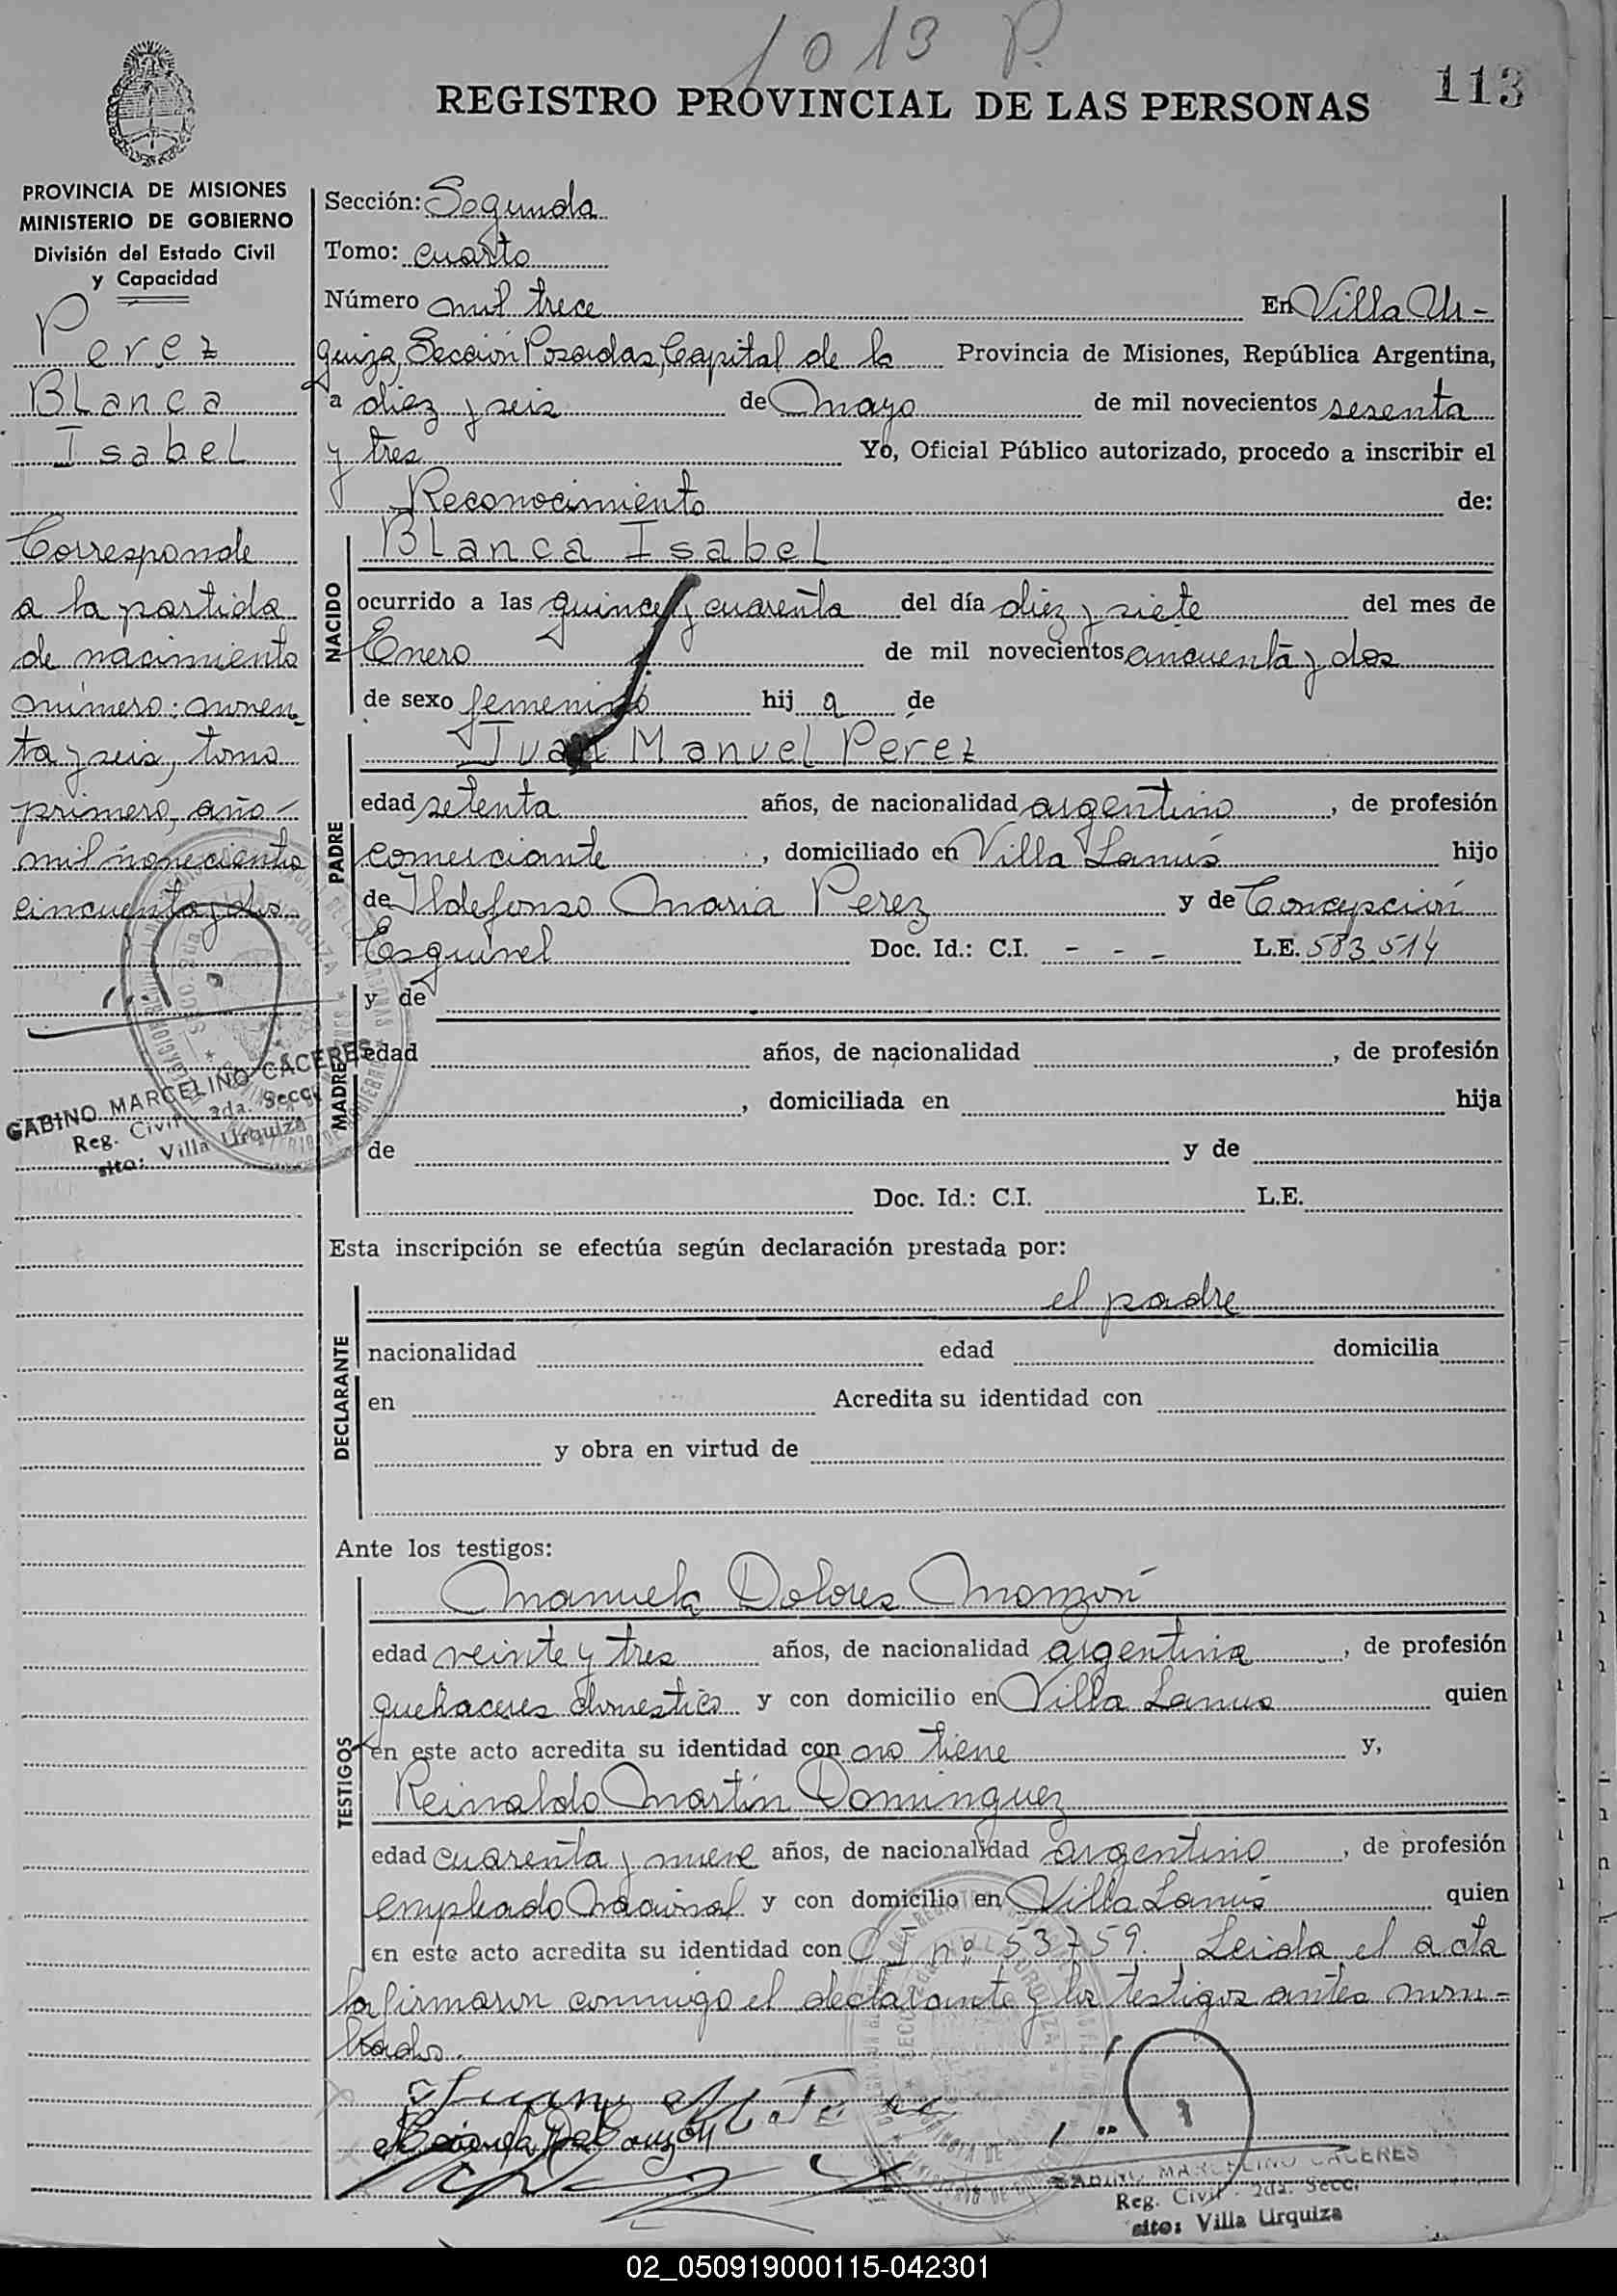 1013 P.
REGISTRO PROVINCIAL DE LAS PERSONAS
113
PROVINCIA DE MISIONES
MINISTERIO DE GOBIERNO
División del Estado Civil
y Capacidad
Perez
Blanca
Isabel
Corresponde
a la partida
de nacimiento
número: noven-
ta y seis, tomo
primero, año
mil novecientos
cincuenta y dos
GABINO MARCELINO CACERES
Reg. Civil 2da. Secc.
sito: Villa Urquiza
Sección: Segunda
Tomo: cuarto
Número mil trece En Villa Ur-
quiza, Sección Posadas, Capital de la Provincia de Misiones, República Argentina,
a diez y seis de mayo de mil novecientos sesenta
y tres Yo, Oficial Público autorizado, procedo a inscribir el
Reconocimiento de:
NACIDO
Blanca Isabel
ocurrido a las quince y cuarenta del día diez y siete del mes de
Enero de mil novecientos cincuenta y dos
de sexo femenino hija de
PADRE
Juan Manuel Perez
edad setenta años, de nacionalidad argentino, de profesión
comerciante, domiciliado en Villa Lanús hijo
de Ildefonso Maria Perez y de Concepción
Esquivel Doc. Id.: C.I. - - - L.E. 583.514
MADRE
y de
edad años, de nacionalidad , de profesión
, domiciliada en hija
de y de
Doc. Id.: C.I. L.E.
Esta inscripción se efectúa según declaración prestada por:
DECLARANTE
el padre
nacionalidad edad domicilia
en Acredita su identidad con
y obra en virtud de
Ante los testigos:
TESTIGOS
Manuela Dolores Monzón
edad veinte y tres años, de nacionalidad argentina, de profesión
quehaceres domestico y con domicilio en Villa Lanus quien
en este acto acredita su identidad con no tiene y,
Reinaldo Martín Dominguez
edad cuarenta y nueve años, de nacionalidad argentino, de profesión
empleado Nacional y con domicilio en Villa Lanús quien
en este acto acredita su identidad con C I nº 53759. Leida el acta
la firmaron conmigo el declarante y los testigos antes nom-
brados.
GABINO MARCELINO CACERES
Reg. Civil 2da. Secc.
sito: Villa Urquiza
02_050919000115-042301